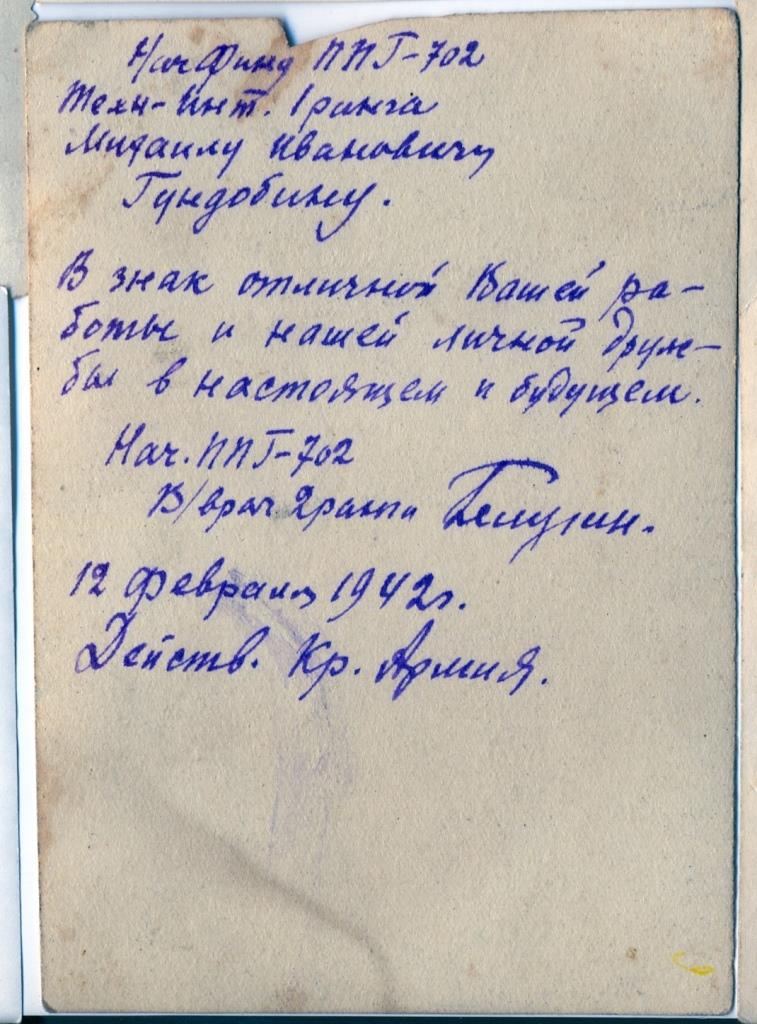 НачФину ППГ-702
Техн-Инт. 1 ранга
Михаилу Ивановичу
Гундобину.
В знак отличной Вашей ра-
боты и нашей личной друж-
бы в настоящем и будущем.
Нач. ППГ-702
В/врач 2 ранга
12 февраля 1942г.
Действ. Кр. Армия.